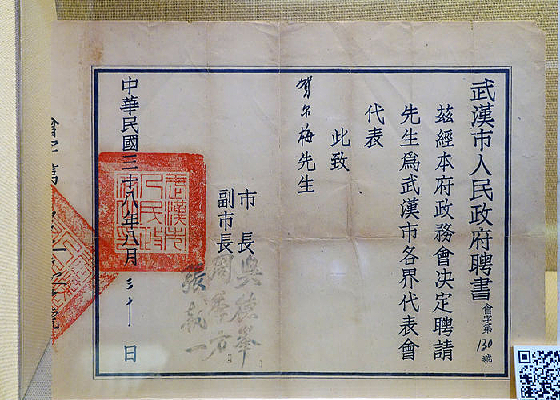 武漢市人民政府聘書
會字第130號
茲經本府政務會決定聘請
先生為武漢市各界代表會
代表
此致
賀尔梅先生
市長 吳德峯
副市長 周季方
張執一
中華民國三十八年八月三十日
武漢市人民政府印